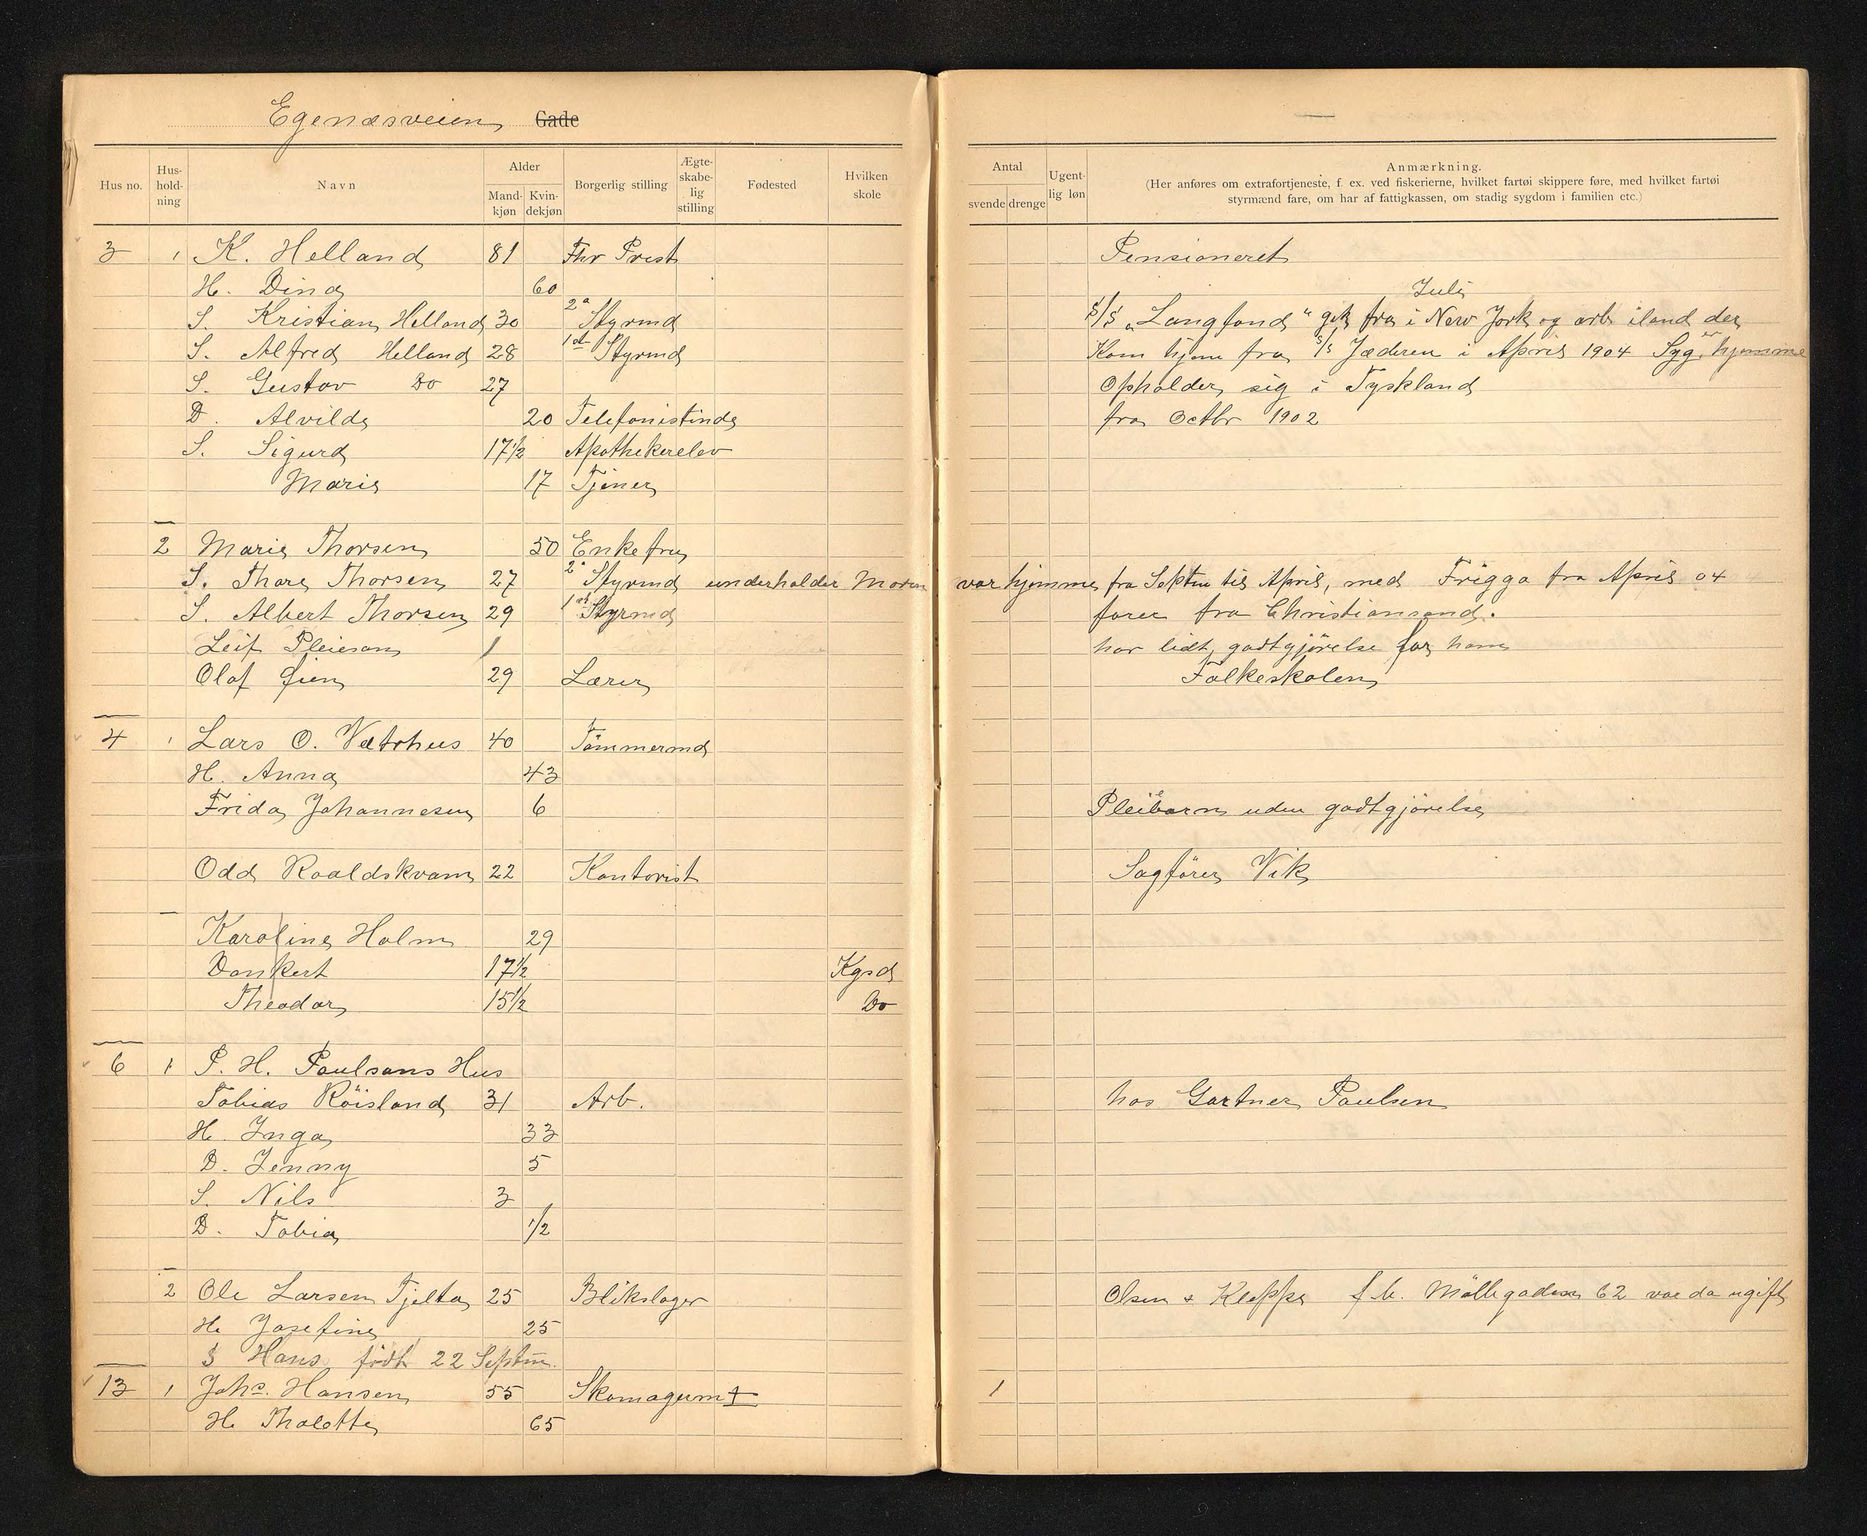 Egenæsveien Gade
Hus no. Hus-hold-ning Navn Alder Mand-kjøn Kvin-dekjøn Borgerlig stilling Ægte-skabe-lig stilling Fødested Hvilken skole
Antal svende drenge Ugent-lig løn Anmærkning.
(Her anføres om extrafortjeneste, f. ex. ved fiskerierne, hvilket fartøi skippere føre, med hvilket fartøi
styrmænd fare, om har af fattigkassen, om stadig sygdom i familien etc.)
3 1 K. Helland 81 Fhv Prest Pensioneret
H. Dina 60
S. Kristian Helland 30 2a Styrmd S/S "Langfond" gik fra i New York Juli og arb iland der
S. Alfred Helland 28 1ste Styrmd Kom hjem fra S/S Jæderen i April 1904 Syg er hjemme
S. Gustav Do 27 Opholder sig i Tyskland
D. Alvilde 20 Telefonistinde fra Octbr 1902
S. Sigurd 17 1/2 Apothekerelev
Marie 17 Tjener
2 Marie Thorsen 50 Enkefru
S. Thore Thorsen 27 2a Styrmd underholder Moren var hjemme fra Septm til April, med Frigga fra April 04
S. Albert Thorsen 29 1st Styrmd farer fra Christiansand.
Leif Pleiesøn 1 har lidt godtgjørelse for ham
Olaf Øien 29 Lærer Folkeskolen
4 1 Lars O. Vatrhus 40 Tømmermd
H. Anna 43
Frida Johannesen 6 Pleiebarn uden godtgjørelse
Odd Roaldskvam 22 Kontorist Sagfører Vik
Karoline Holm 29
Dankert 17 1/2 Kgsd
Theodor 15 1/2 Do
6 1 P. H. Paulsens Hus
Tobias Röisland 31 Arb. hos Gartner Paulsen
H. Inga 33
D. Jenny 5
S. Nils 3
D. Tobia 1/2
2 Ole Larsen Tjelta 25 Blikslager Olsen & Kleppe f. b. Möllegaden 62 var da ugift
H. Josefine 25
S Hans födt 22 Septm.
13 1 Johs. Hansen 55 Skomagerm 1
H. Tholette 65